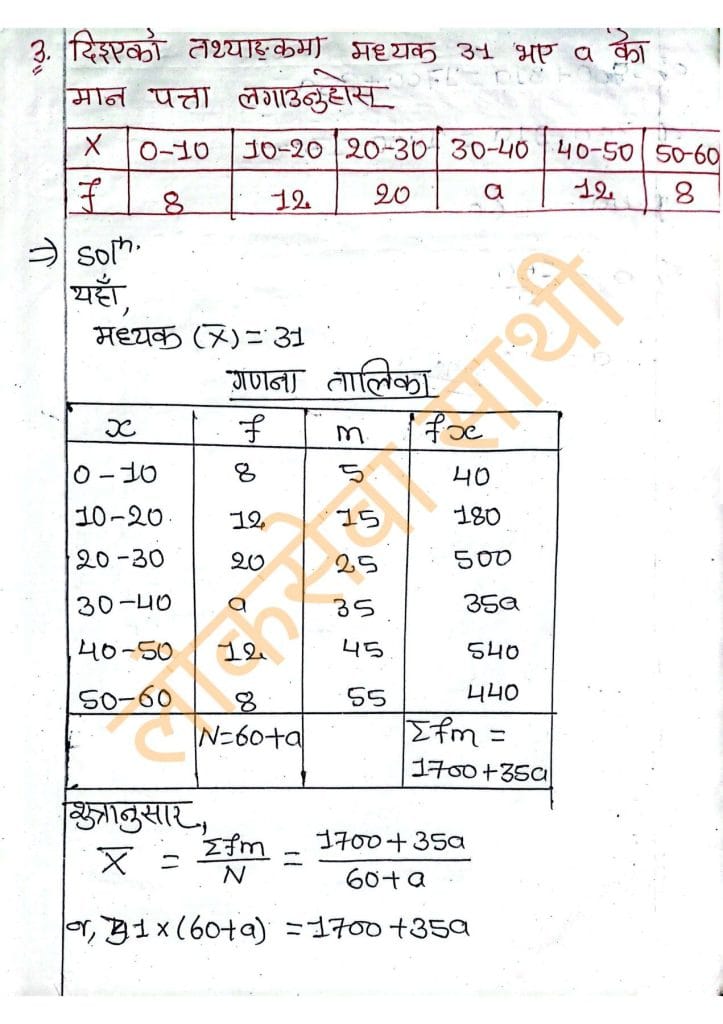 3. दिइएको तथ्याङ्कमा मध्यक 31 भए a को
मान पत्ता लगाउनुहोस्
X 0-10 10-20 20-30 30-40 40-50 50-60
f 8 12 20 a 12 8
⇒ Solⁿ.
यहाँ,
मध्यक (X̅) = 31
गणना तालिका
x f m fx
0-10 8 5 40
10-20 12 15 180
20-30 20 25 500
30-40 a 35 35a
40-50 12 45 540
50-60 8 55 440
N=60+a Σfm =
1700+35a
शुत्रानुसार,
X̅ = Σfm/N = 1700+35a/60+a
or, 31×(60+a) = 1700+35a
लोकसेवा साथी